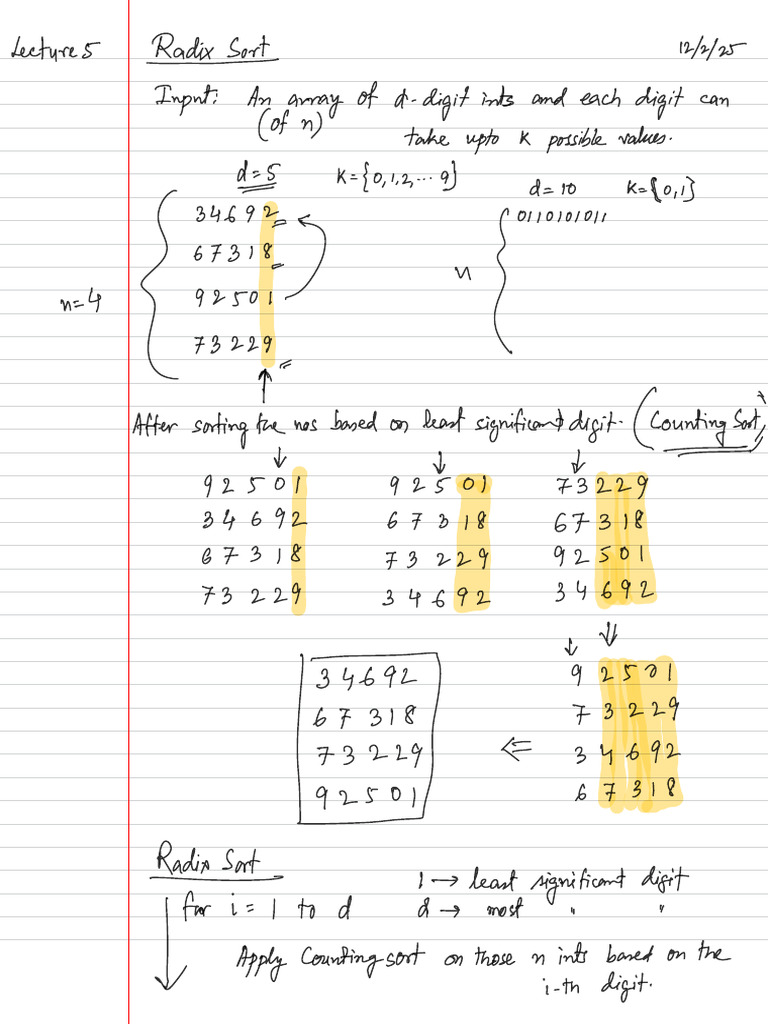 Lecture 5 Radix Sort 12/2/25
Input: An array of d-digit ints and each digit can
(of n) take upto K possible values.
d=5 K={0,1,2,...9} d=10 K={0,1}
34692 0110101011
67318
n
n=4 92501
73229
After sorting the nos based on least significant digit. (Counting Sort)
92501 92501 73229
34692 67318 67318
67318 73229 92501
73229 34692 34692
34692 92501
67318 73229
73229 ⇐ 34692
92501 67318
Radix Sort
1 → least significant digit
for i = 1 to d d → most " "
Apply Counting sort on those n ints based on the
i-th digit.